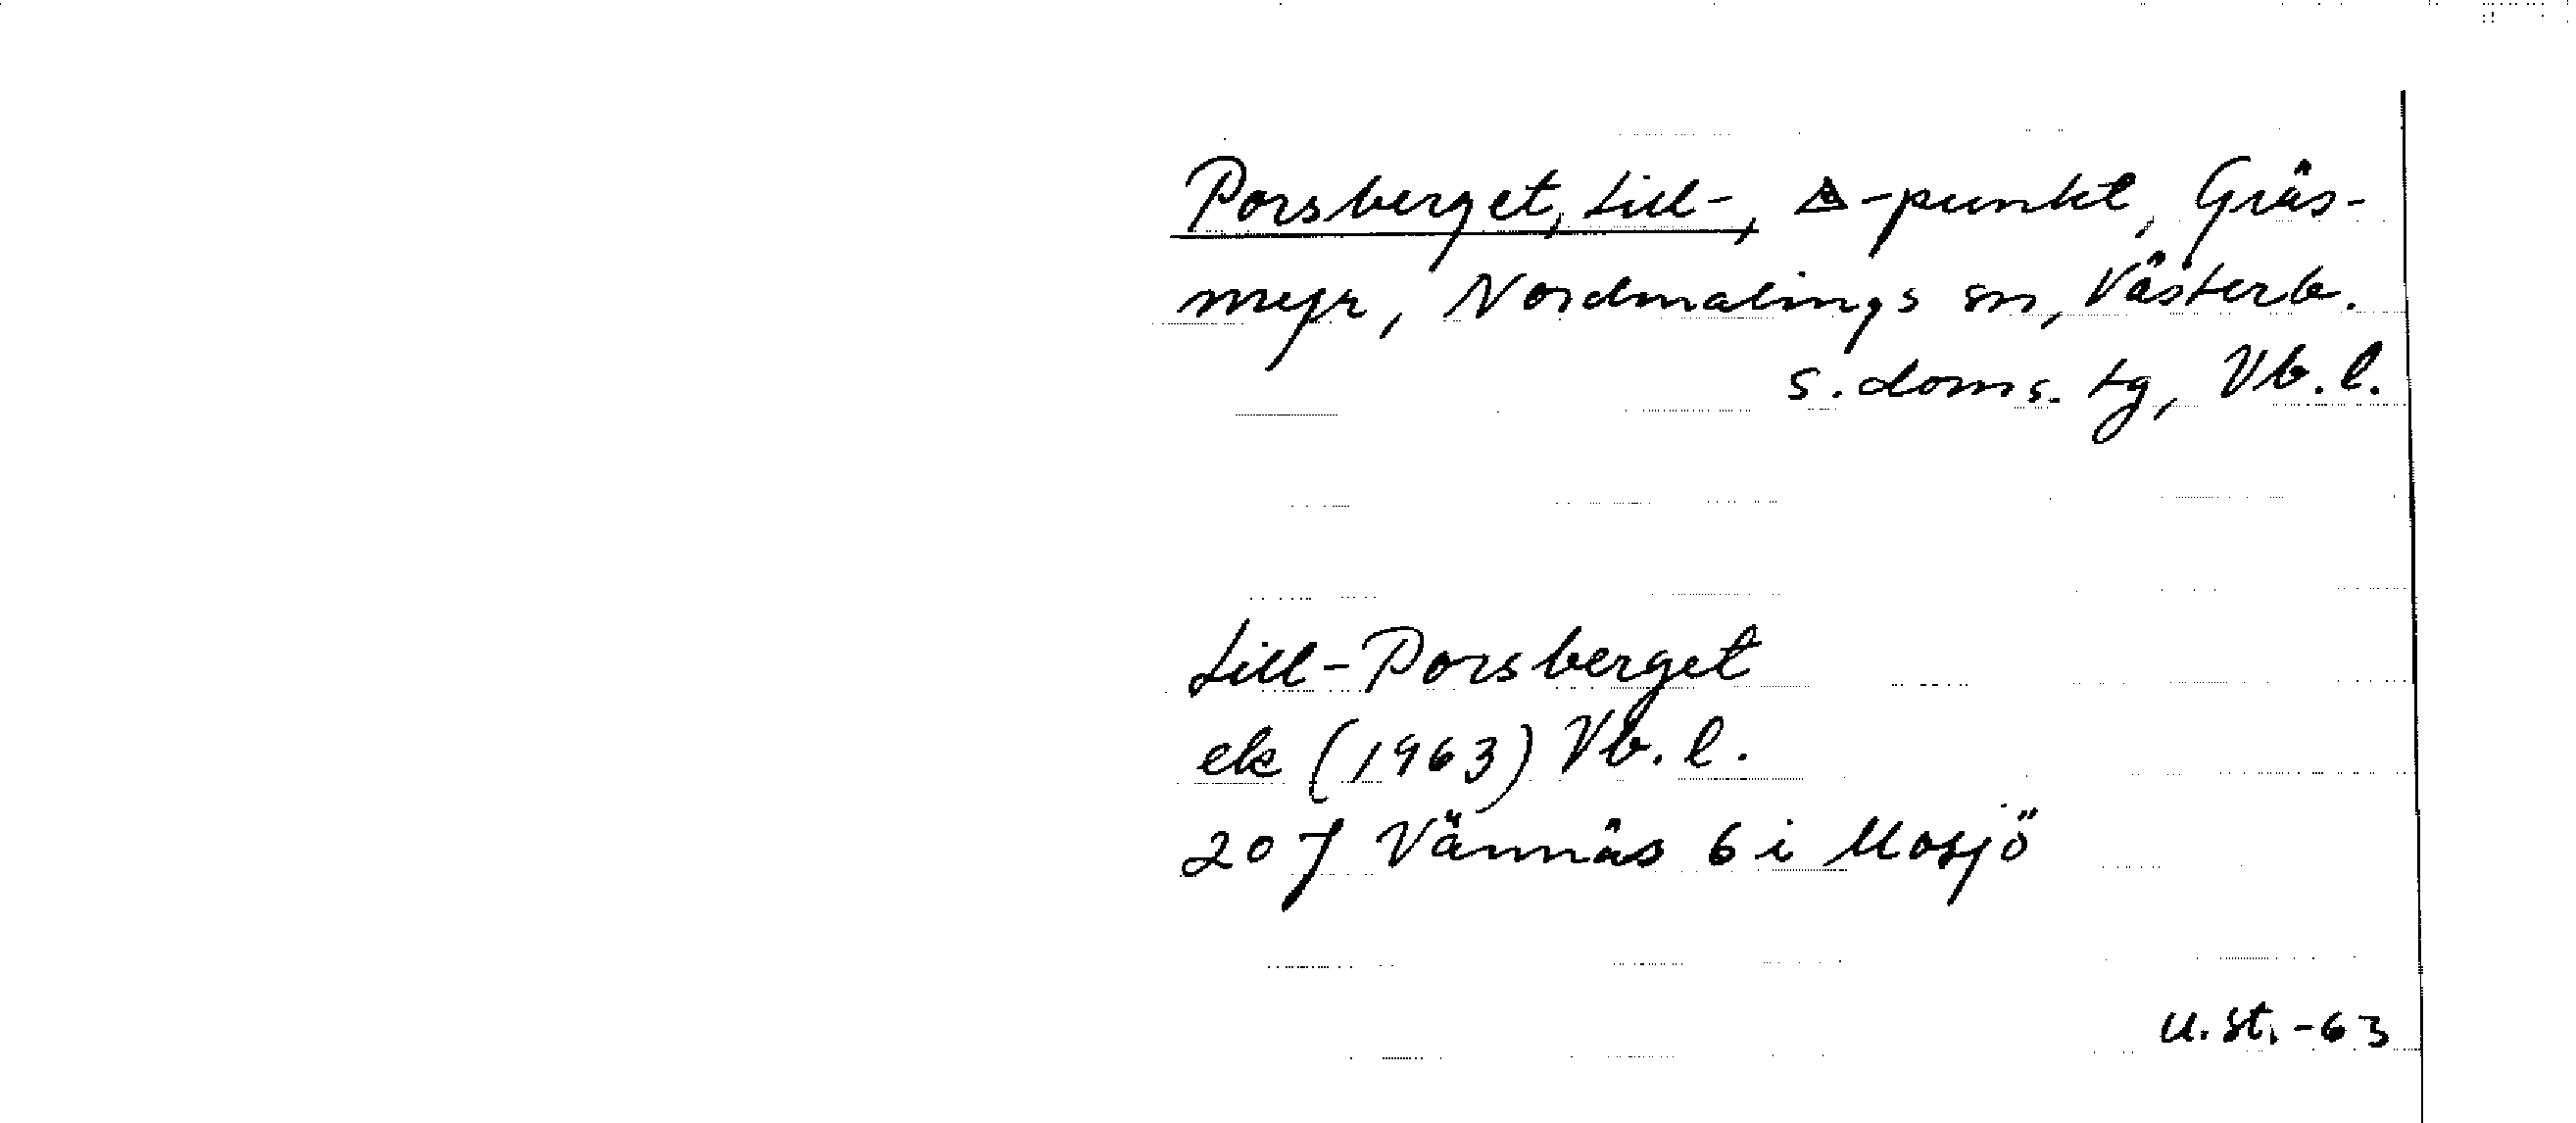 Porsberget, Lill-, △-punkt, Gräs-
myr, Nordmalings sn, Västerb.
s. doms. tg, Vb. l.
Lill-Porsberget
ek (1963) Vb. l.
20 J Vännäs 6 i Mosjö
U. St. -63